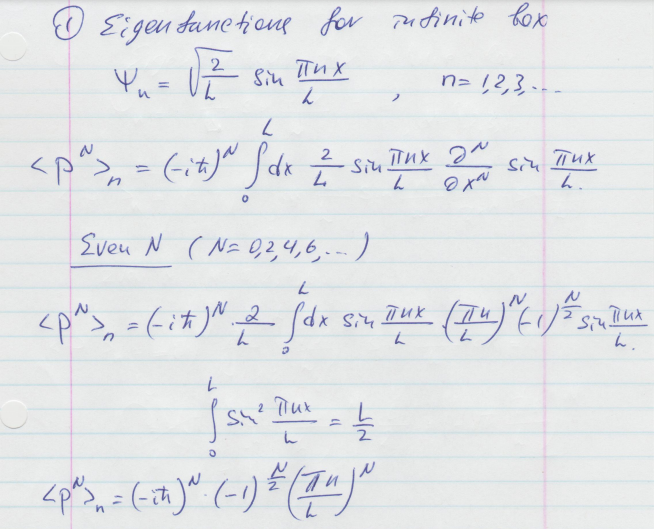 ① Eigenfunctions for infinite box
Ψₙ = √(2/L) sin πnx/L , n = 1,2,3,...
<p^N>ₙ = (-iħ)^N ∫₀^L dx 2/L sin πnx/L ∂^N/∂x^N sin πnx/L.
Even N (N=0,2,4,6,...)
<p^N>ₙ = (-iħ)^N · 2/L ∫₀^L dx sin πnx/L · (πn/L)^N (-1)^(N/2) sin πnx/L.
∫₀^L sin² πnx/L = L/2
<p^N>ₙ = (-iħ)^N · (-1)^(N/2) (πn/L)^N